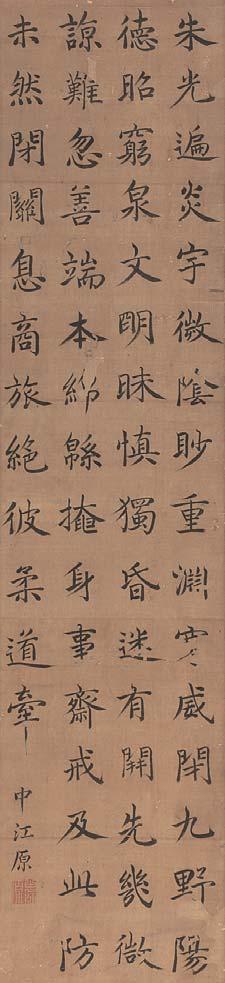 朱光遍炎宇微陰眇重淵寒威閉九野陽
德昭窮泉文明昧慎獨昏迷有開先幾微
諒難忽善端本綿緜掩身事齋戒及此防
未然閉關息商旅絕彼柔道牽
中江原